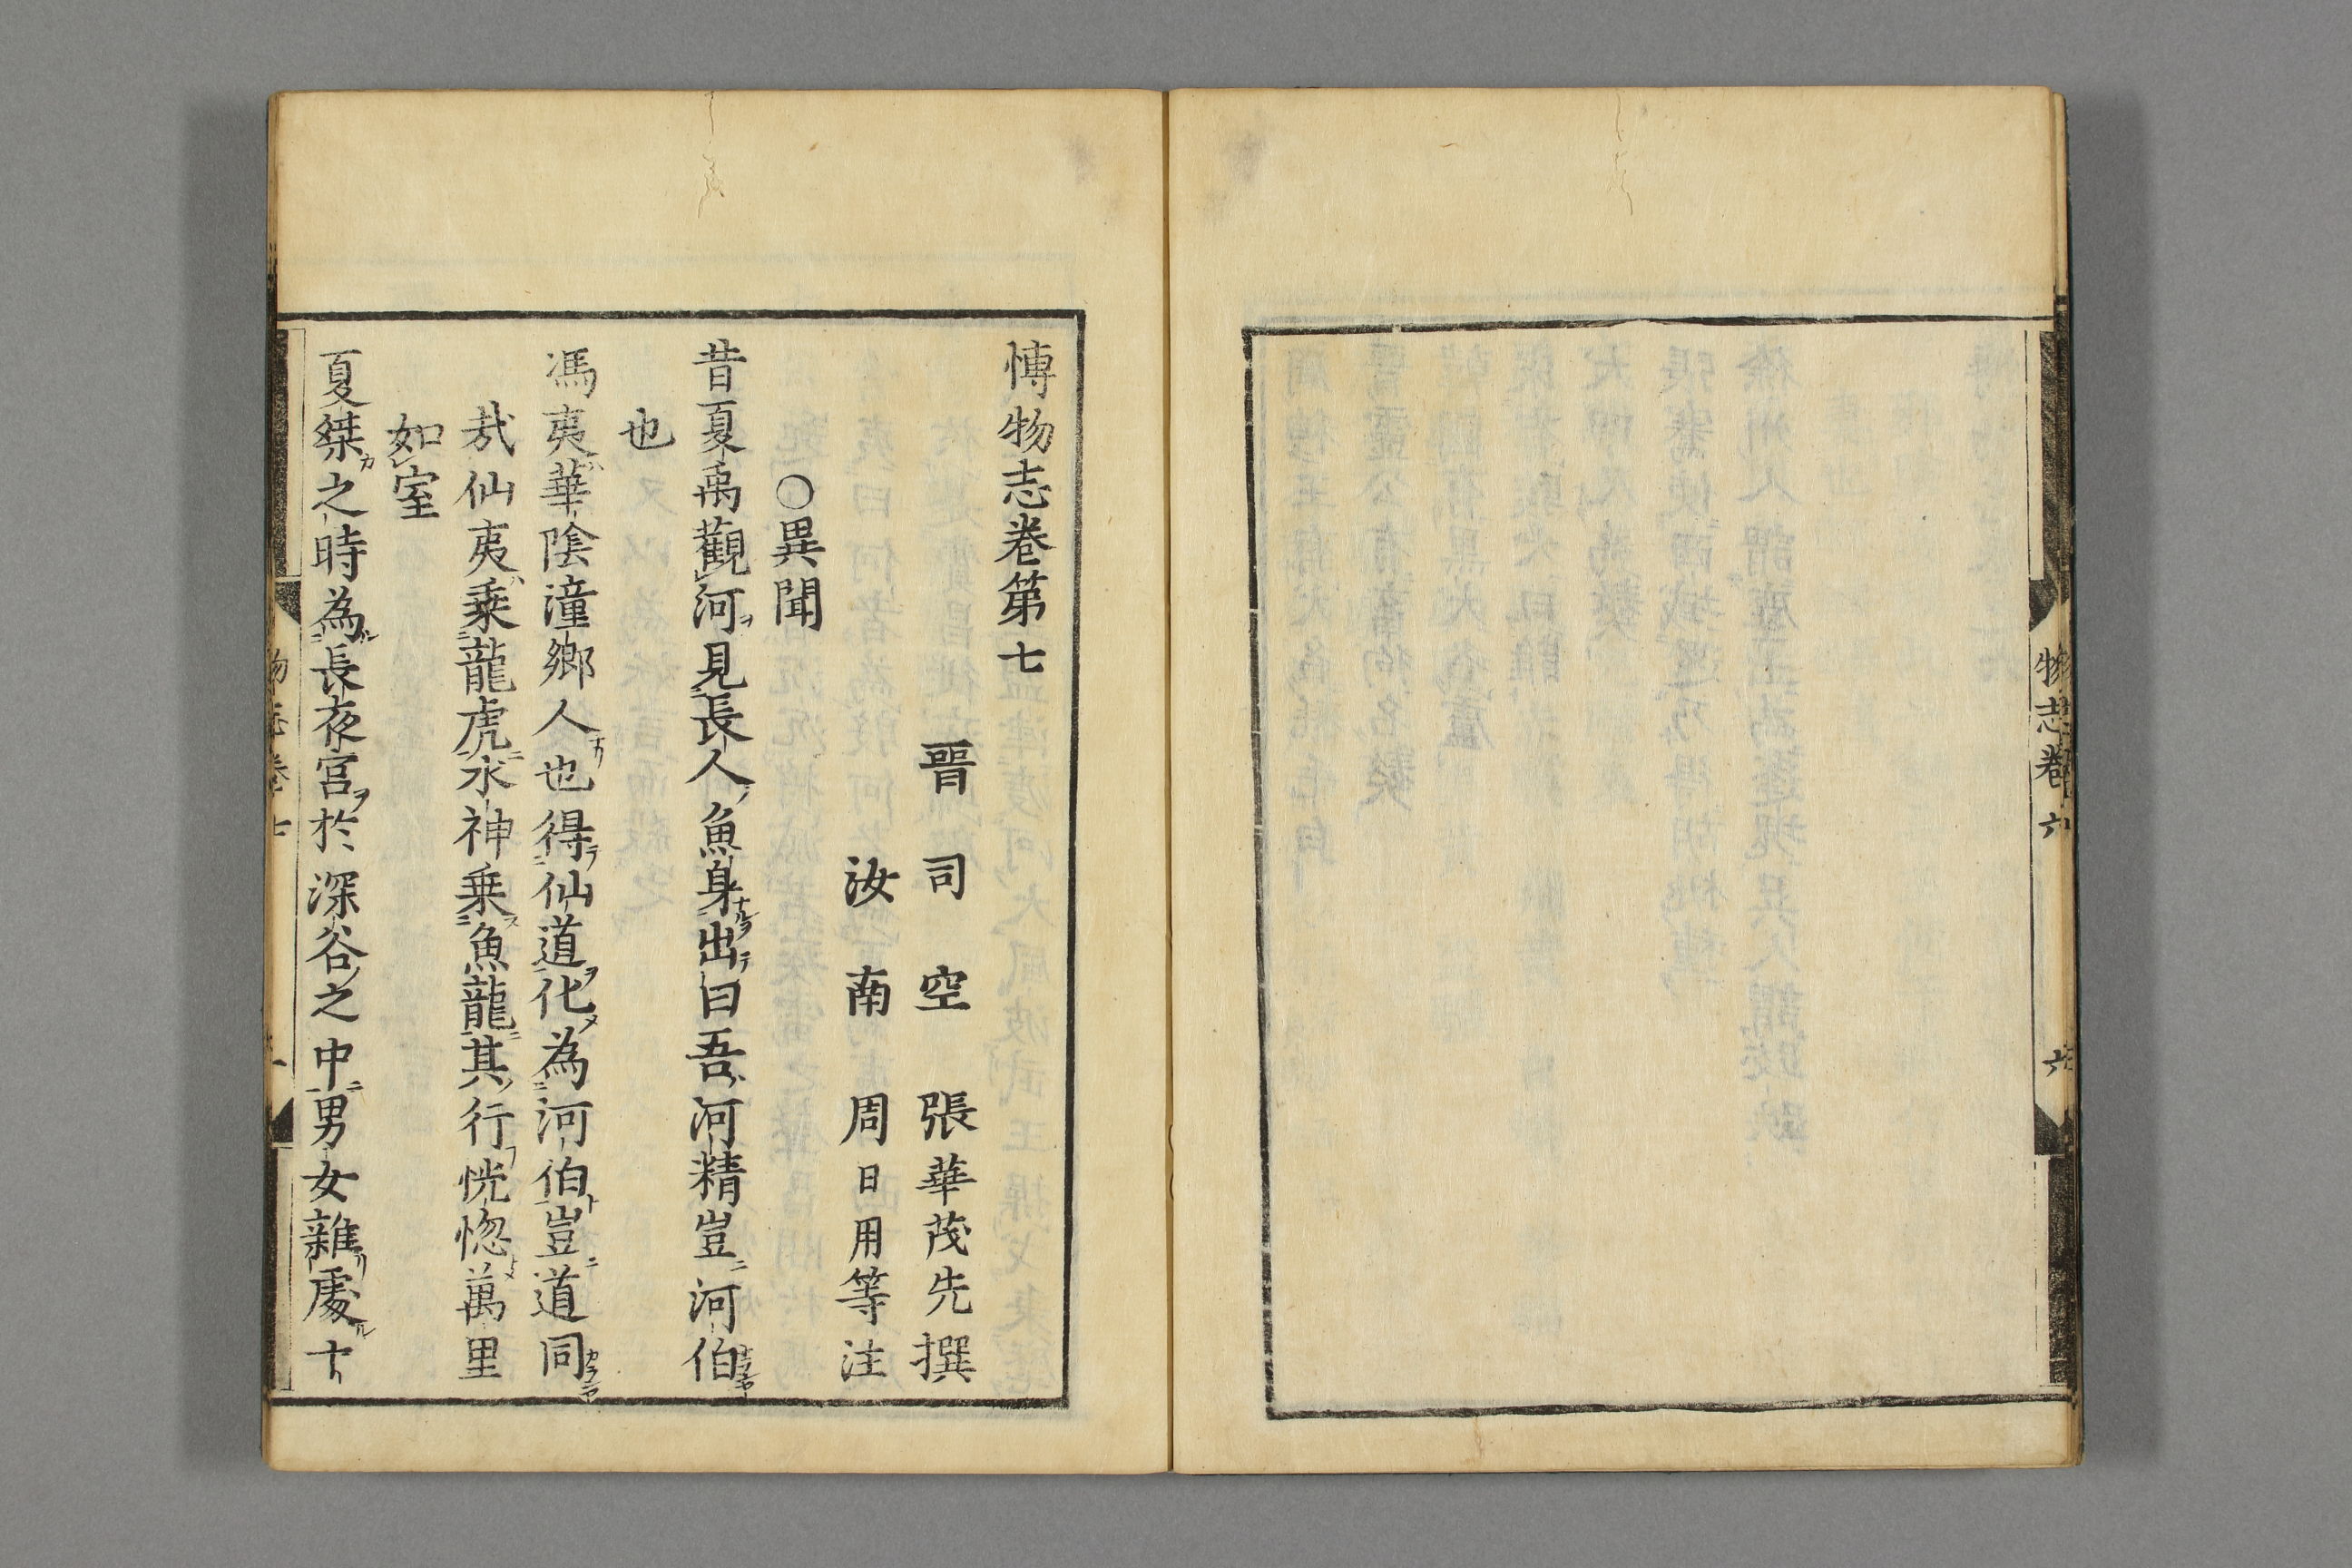 物志卷六
六
博物志卷第七
晉司空張華茂先撰
汝南周日用等注
○異聞
昔夏禹觀河見長人魚身出曰吾河精豈河伯
也
馮夷華陰潼鄉人也得仙道化為河伯豈道同
哉仙夷乗龍虎水神乗魚龍其行恍惚萬里
如室
夏桀之時為長夜宮於深谷之中男女雜處十